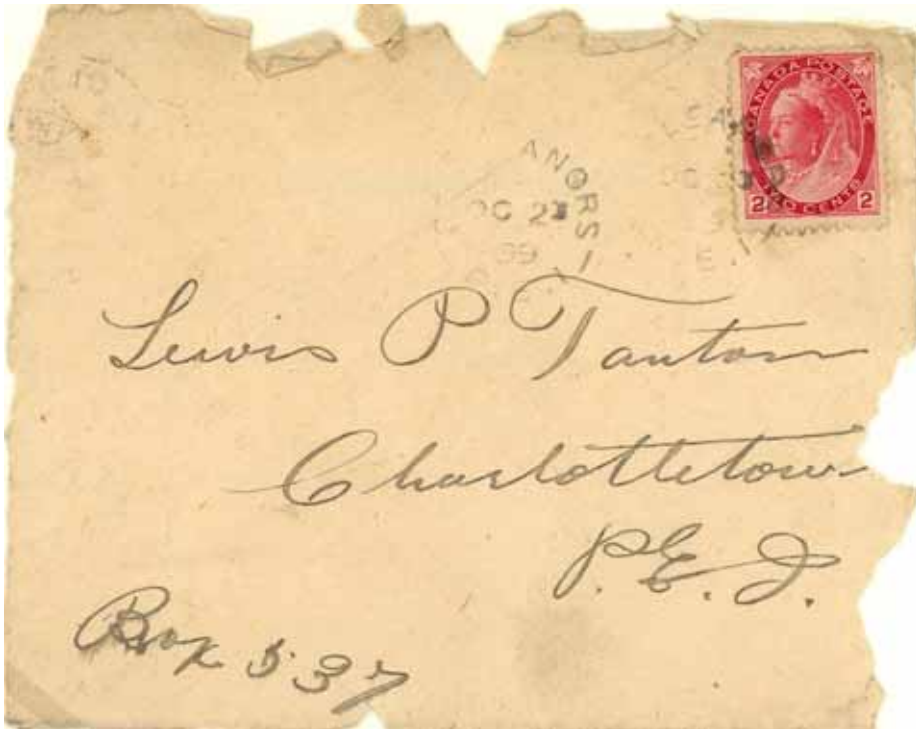 CANADA POSTAGE
2 TWO CENTS 2
OC 23
99
Lewis P Tanton
Charlottetown
P.E.I.
Box 537